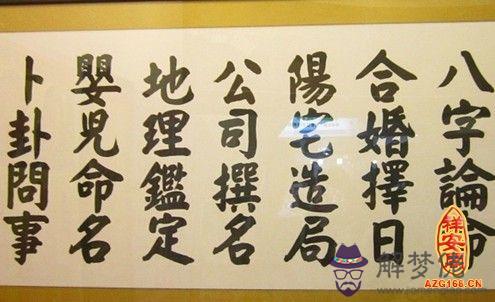 八字論命
合婚擇日
陽宅造局
公司撰名
地理鑑定
嬰兒命名
卜卦問事
祥安阁
解梦佬
AZG168.CN